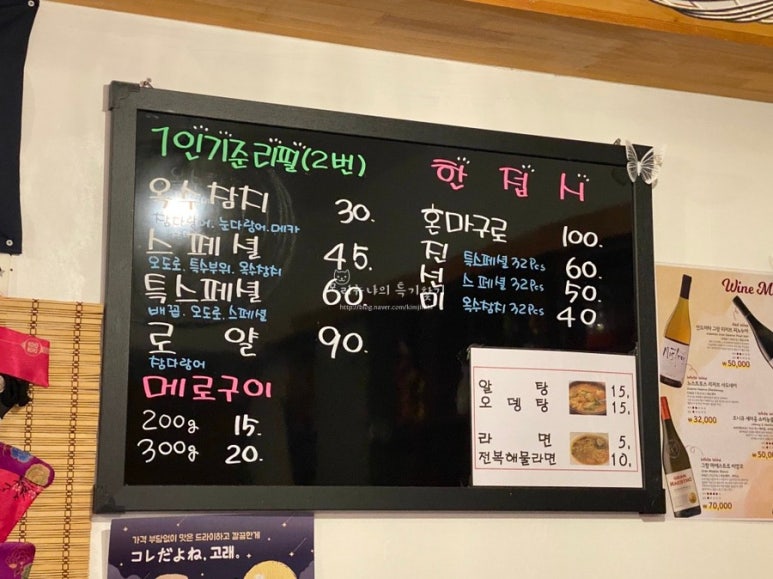 1인기준리필(2번)
옥수참치 30.
참다랑어. 눈다랑어. 메카
스페셜 45.
오도로. 특수부위. 옥수참치
특스페셜 60
배꼽. 오도로. 스페셜
로얄 90.
참다랑어
메로구이
200g 15.
300g 20.
한 접 시
혼마구로 100.
진 특스페셜 32Pcs 60.
선 스페셜 32Pcs 50.
미 옥수참치 32Pcs 40
알 탕 15,
오 뎅 탕 15,
라 면 5,
전복해물라면 10,
나의 특기
http://blog.naver.com/kimji
Wine M
Red wine
₩50,000
White wine
₩32,000
White wine
₩50,00
₩70,000
가격 부담없이 맛은 드라이하고 깔끔한게
コレだよね、고래。